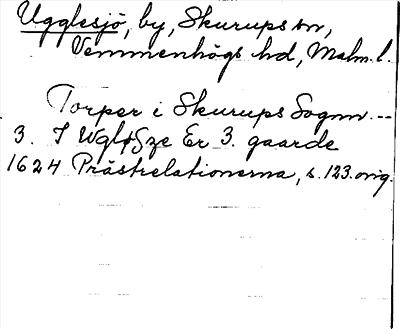 Ugglesjö, by, Skurups sn,
Vemmenhögs hd, Malm. l.
Torper i Skurups Sognn ---
3. I Uglߧze Er 3. gaarde
1624 Prästrelationerna, s. 123. orig.